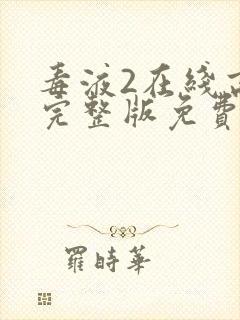 毒液2在线
完整版免費
羅時華